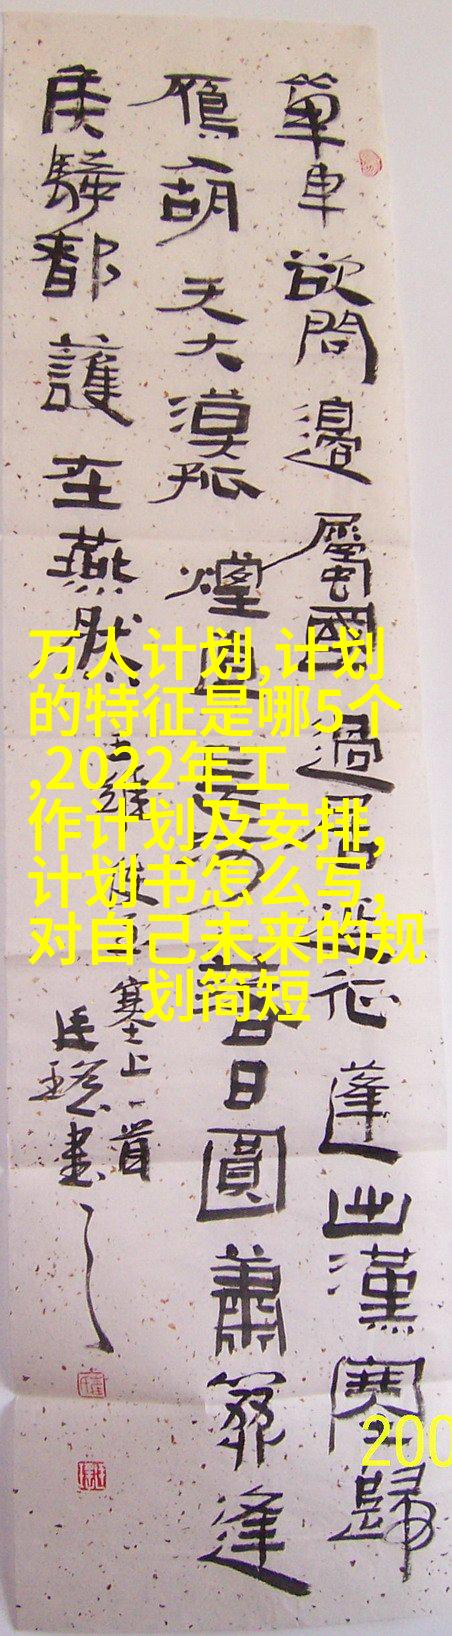 單車欲問邊屬國過居延征蓬出漢塞歸
鴈入胡天大漠孤煙直長河日圓蕭逢
騎都護在燕然
王維使至
塞上一首
書
万人计划,计划
的特征是哪5个
,2022年工
作计划及安排,
计划书怎么写,
对自己未来的规
划简短
200